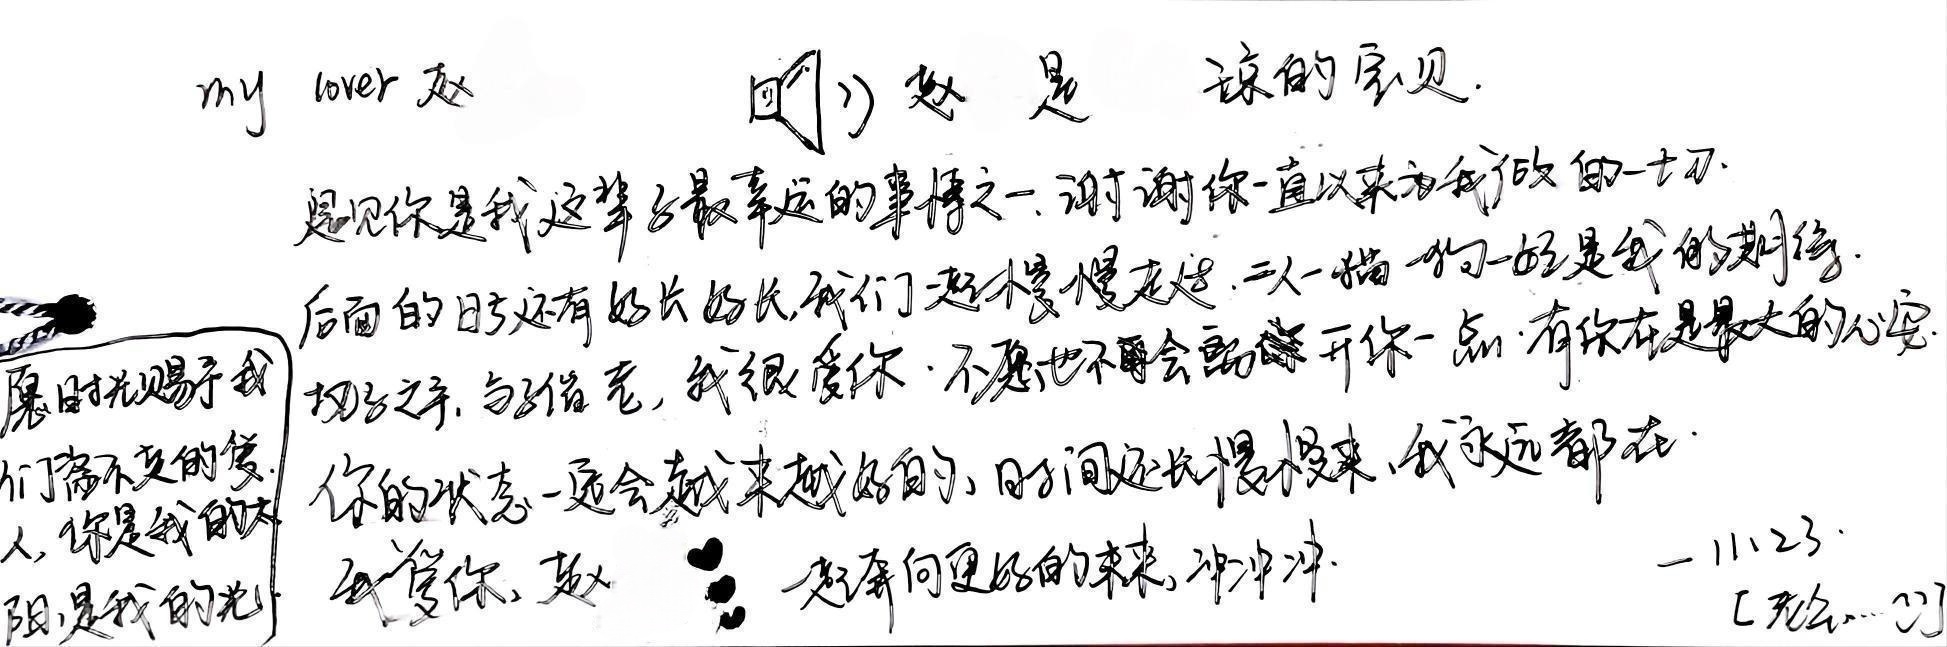 my lover 赵
赵 是 琼的宝贝.
遇见你是我这辈子最幸运的事情之一、谢谢你一直以来为我做的一切.
后面的日子还有好长好长,我们一起慢慢走过.二人一猫一狗一好是我的期待.
执子之手,与子偕老,我很爱你.不愿也不再会离开你一点.有你在是最大的心安.
你的状态一定会越来越好的、时间还长慢慢来,我永远都在.
我爱你、赵 一起奔向更好的未来、冲冲冲.
一11.23.
愿时光赐予我
们永不变的爱.
人,你是我的太
阳,是我的光.